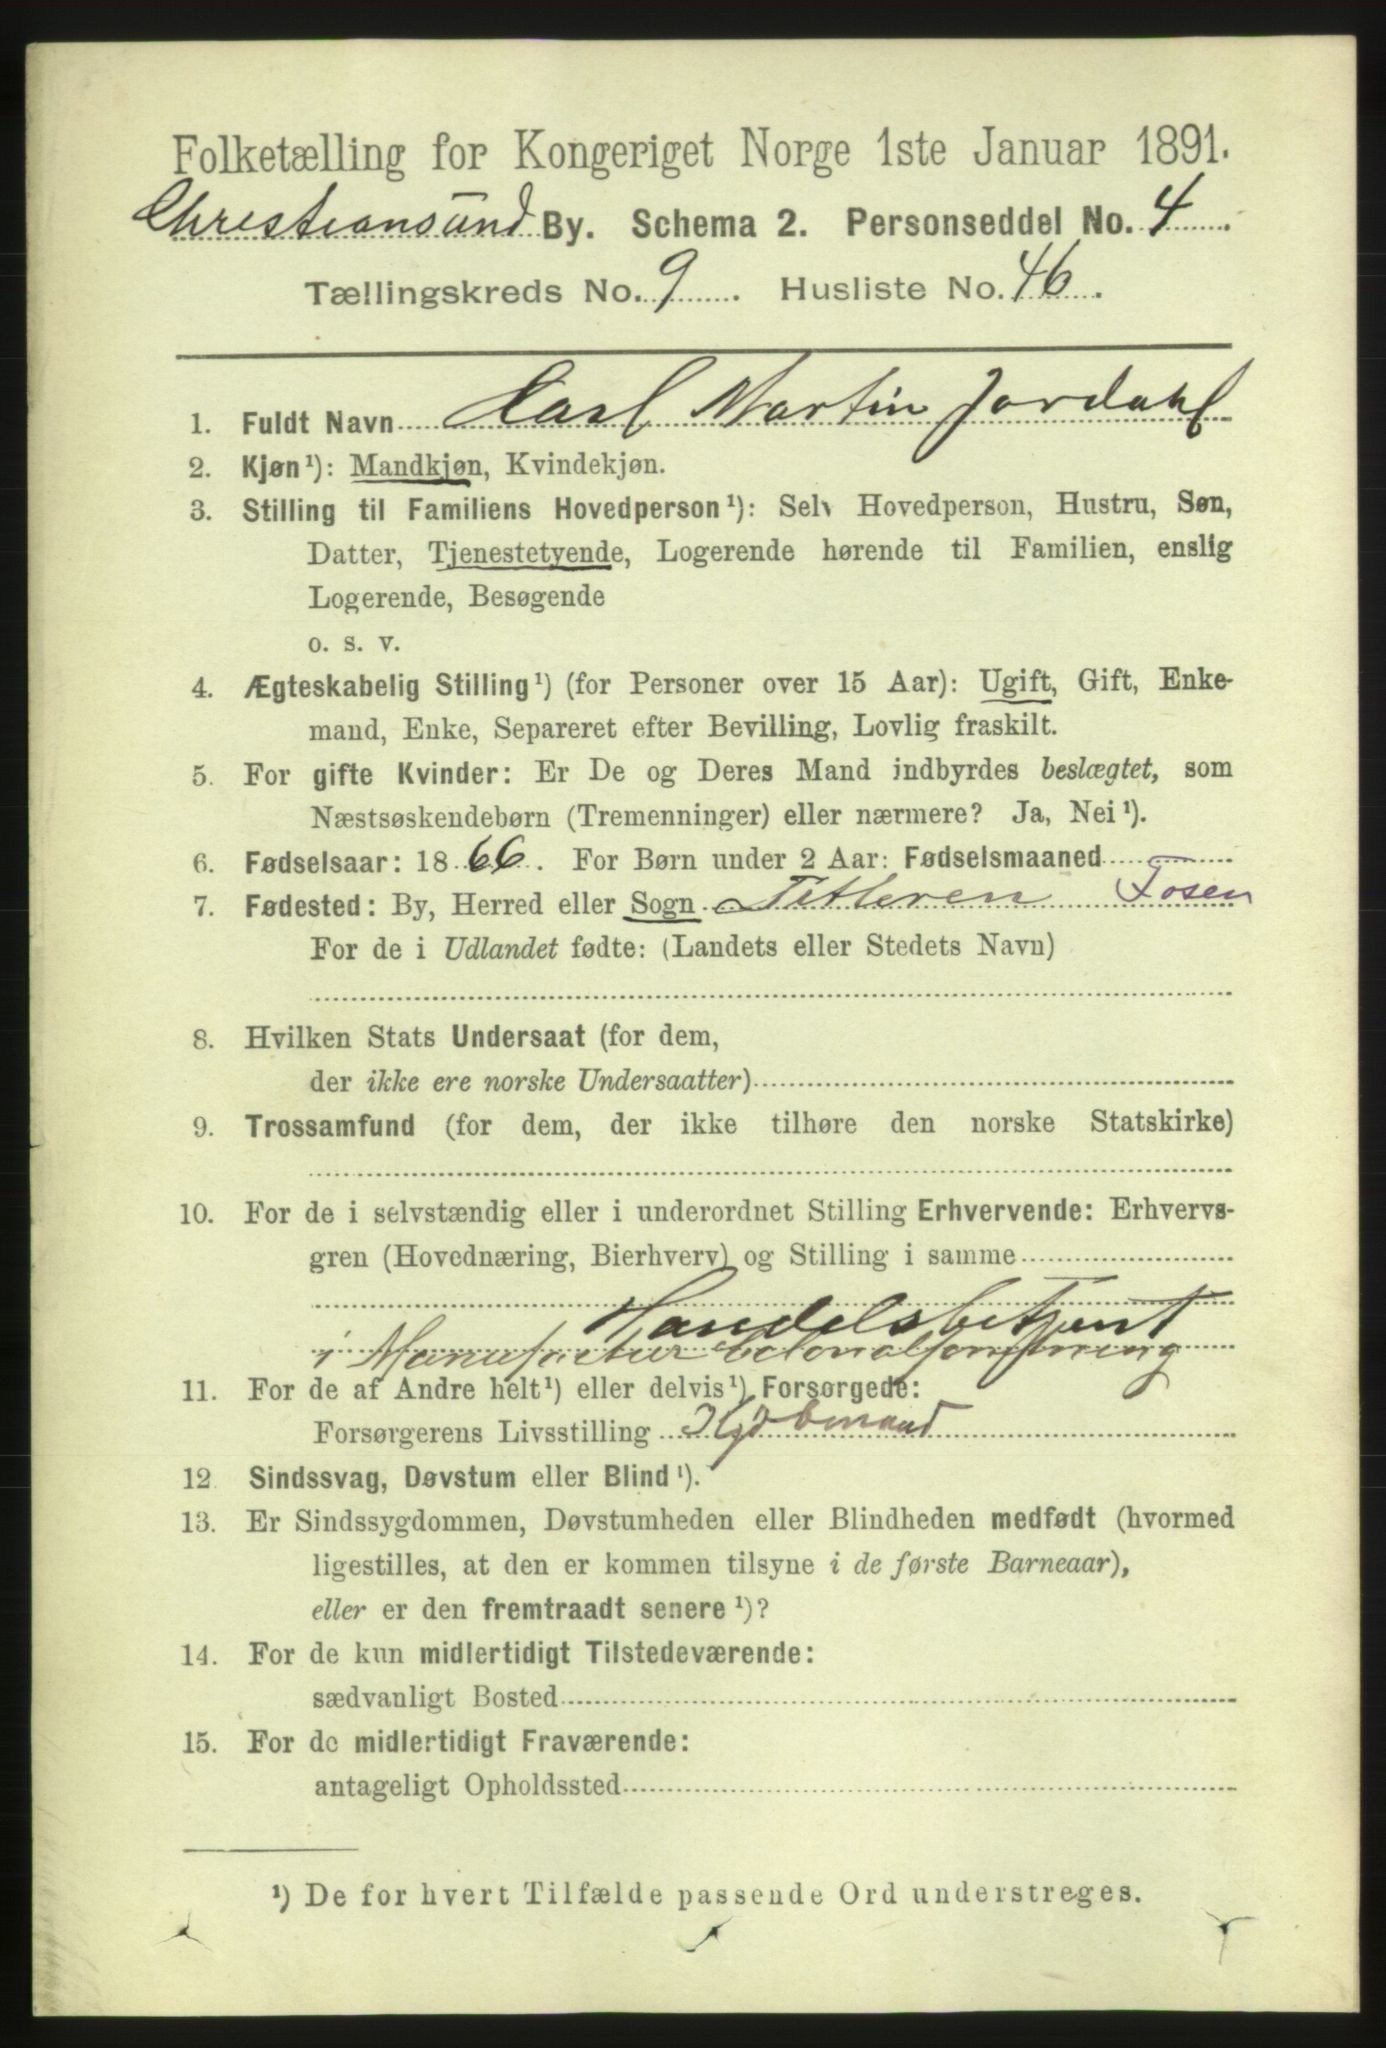 Folketælling for Kongeriget Norge 1ste Januar 1891.
Christiansund By. Schema 2. Personseddel No. 4.
Tællingskreds No. 9. Husliste No. 46.
1. Fuldt Navn Carl Martin Jordahl
2. Kjøn¹): Mandkjøn, Kvindekjøn.
3. Stilling til Familiens Hovedperson¹): Selv Hovedperson, Hustru, Søn,
Datter, Tjenestetyende, Logerende hørende til Familien, enslig
Logerende, Besøgende
o. s. v.
4. Ægteskabelig Stilling¹) (for Personer over 15 Aar): Ugift, Gift, Enke-
mand, Enke, Separeret efter Bevilling, Lovlig fraskilt.
5. For gifte Kvinder: Er De og Deres Mand indbyrdes beslægtet, som
Næstsøskendebørn (Tremenninger) eller nærmere? Ja, Nei¹).
6. Fødselsaar: 1866. For Børn under 2 Aar: Fødselsmaaned
7. Fødested: By, Herred eller Sogn Titteren Fosen
For de i Udlandet fødte: (Landets eller Stedets Navn)
8. Hvilken Stats Undersaat (for dem,
der ikke ere norske Undersaatter)
9. Trossamfund (for dem, der ikke tilhøre den norske Statskirke)
10. For de i selvstændig eller i underordnet Stilling Erhvervende: Erhvervs-
gren (Hovednæring, Bierhverv) og Stilling i samme
Handelsbetjent
i Manufactur Colonialforretning
11. For de af Andre helt¹) eller delvis¹) Forsørgede:
Forsørgerens Livsstilling Kjøbmand
12 Sindssvag, Døvstum eller Blind¹).
13. Er Sindssygdommen, Døvstumheden eller Blindheden medfødt (hvormed
ligestilles, at den er kommen tilsyne i de første Barneaar),
eller er den fremtraadt senere¹)?
14. For de kun midlertidigt Tilstedeværende:
sædvanligt Bosted
15. For de midlertidigt Fraværende:
antageligt Opholdssted
¹) De for hvert Tilfælde passende Ord understreges.